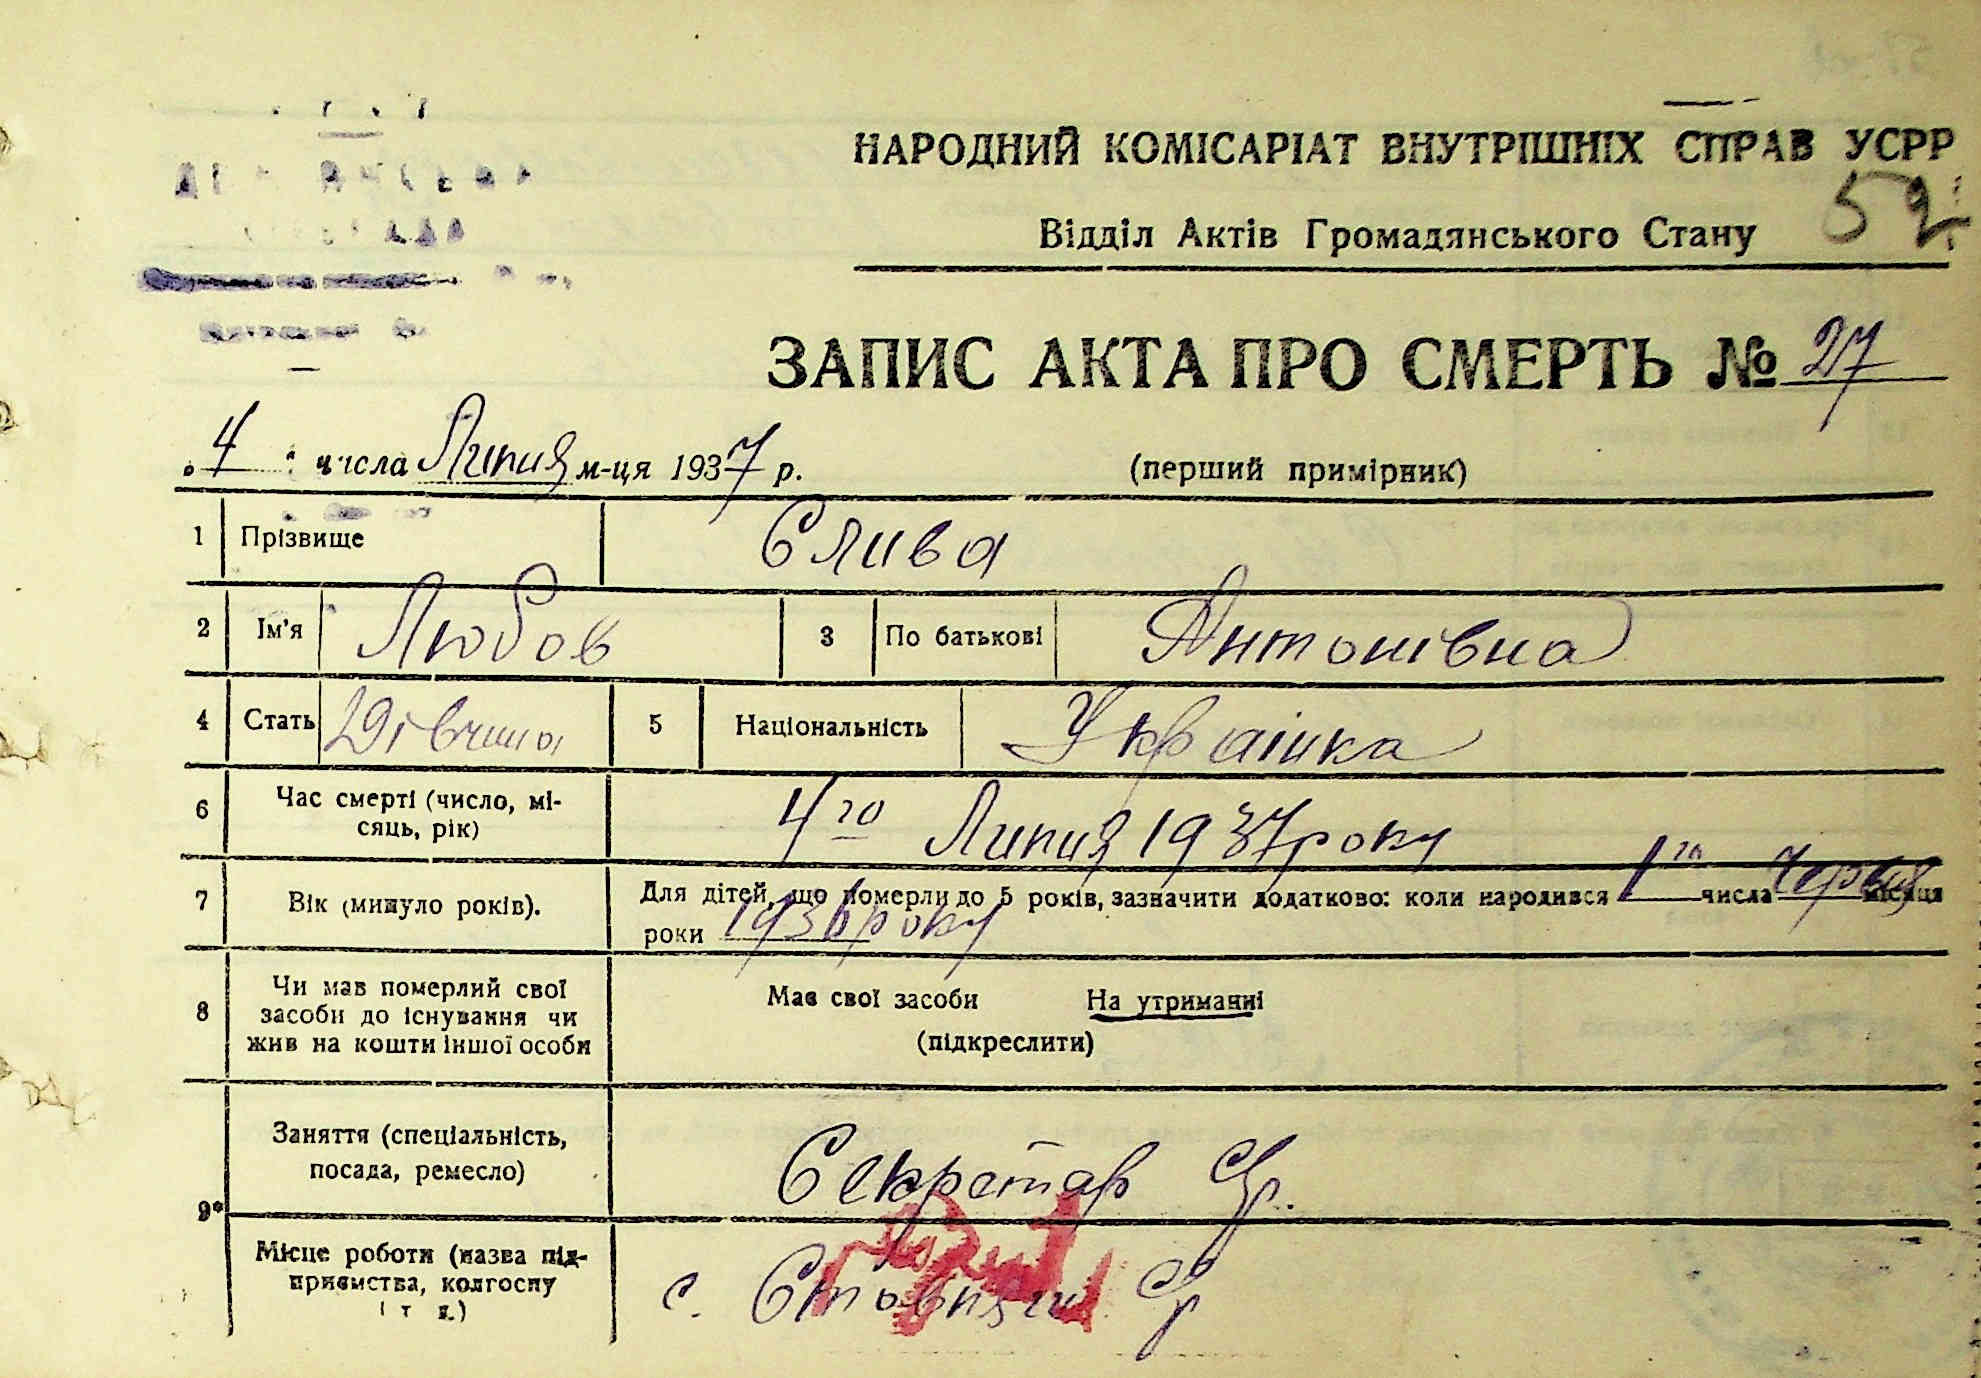 НАРОДНИЙ КОМІСАРІАТ ВНУТРІШНІХ СПРАВ УСРР
52
Відділ Актів Громадянського Стану
ЗАПИС АКТА ПРО СМЕРТЬ № 27
„4“ числа Липня м-ця 1937 р.
(перший примірник)
1 Прізвище Слива
2 Ім'я Любов 3 По батькові Антонівна
4 Стать Дівчина 5 Національність Українка
6 Час смерті (число, мі-
сяць, рік)
4го Липня 1937 року
7 Вік (минуло років).
Для дітей, що померли до 5 років, зазначити додатково: коли народився 1го числа Червня місяця
роки 1936 року
8 Чи мав померлий свої
засоби до існування чи
жив на кошти іншої особи
Має свої засоби На утриманні
(підкреслити)
9* Заняття (спеціальність,
посада, ремесло)
Секретар
Місце роботи (назва під-
приємства, колгоспу
і т п.)
с.